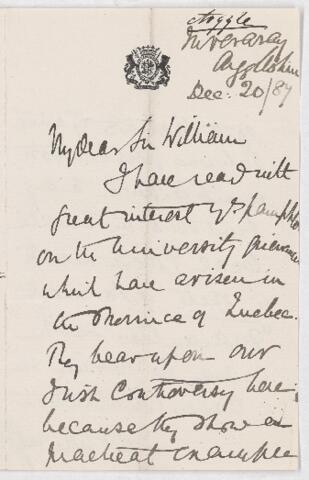 Argyll
Inveraray
Argyllshire
Dec: 20/87
My dear Sir William
I have read with
great interest yr. pamphlet
on the University grievances
which have arisen in
the Province of Quebec.
They bear upon our
Irish Controversy here,
because they show a
practical example